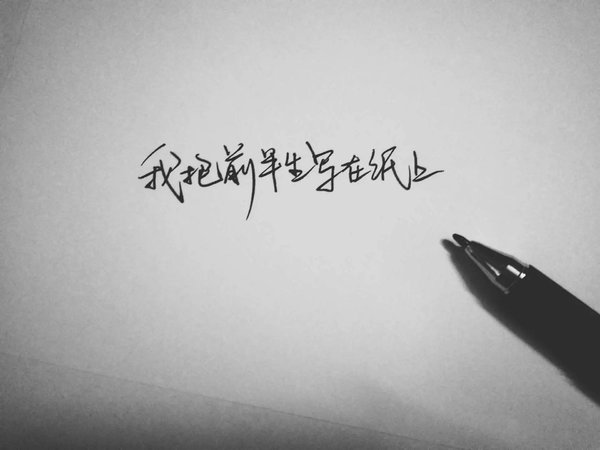 我把前半生写在纸上